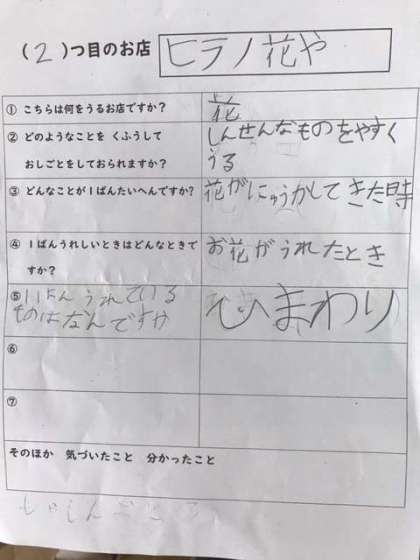 (2)つ目のお店 ヒラノ花や
① こちらは何をうるお店ですか? 花
② どのようなことを くふうして
おしごとをしておられますか?
しんせんなものをやすく
うる
③ どんなことが1ばんたいへんですか? 花がにゅうかしてきた時
④ 1ばんうれしいときはどんなときで
すか?
お花がうれたとき
⑤ 1ばん うれている
ものはなんですか
ひまわり
⑥
⑦
そのほか 気づいたこと 分かったこと